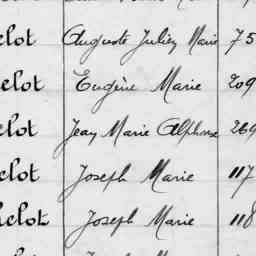 elot Auguste Julien Marie 75
elot Eugène Marie 209
elot Jean Marie Alphonse 269
elot Joseph Marie 117
helot Joseph Marie 118